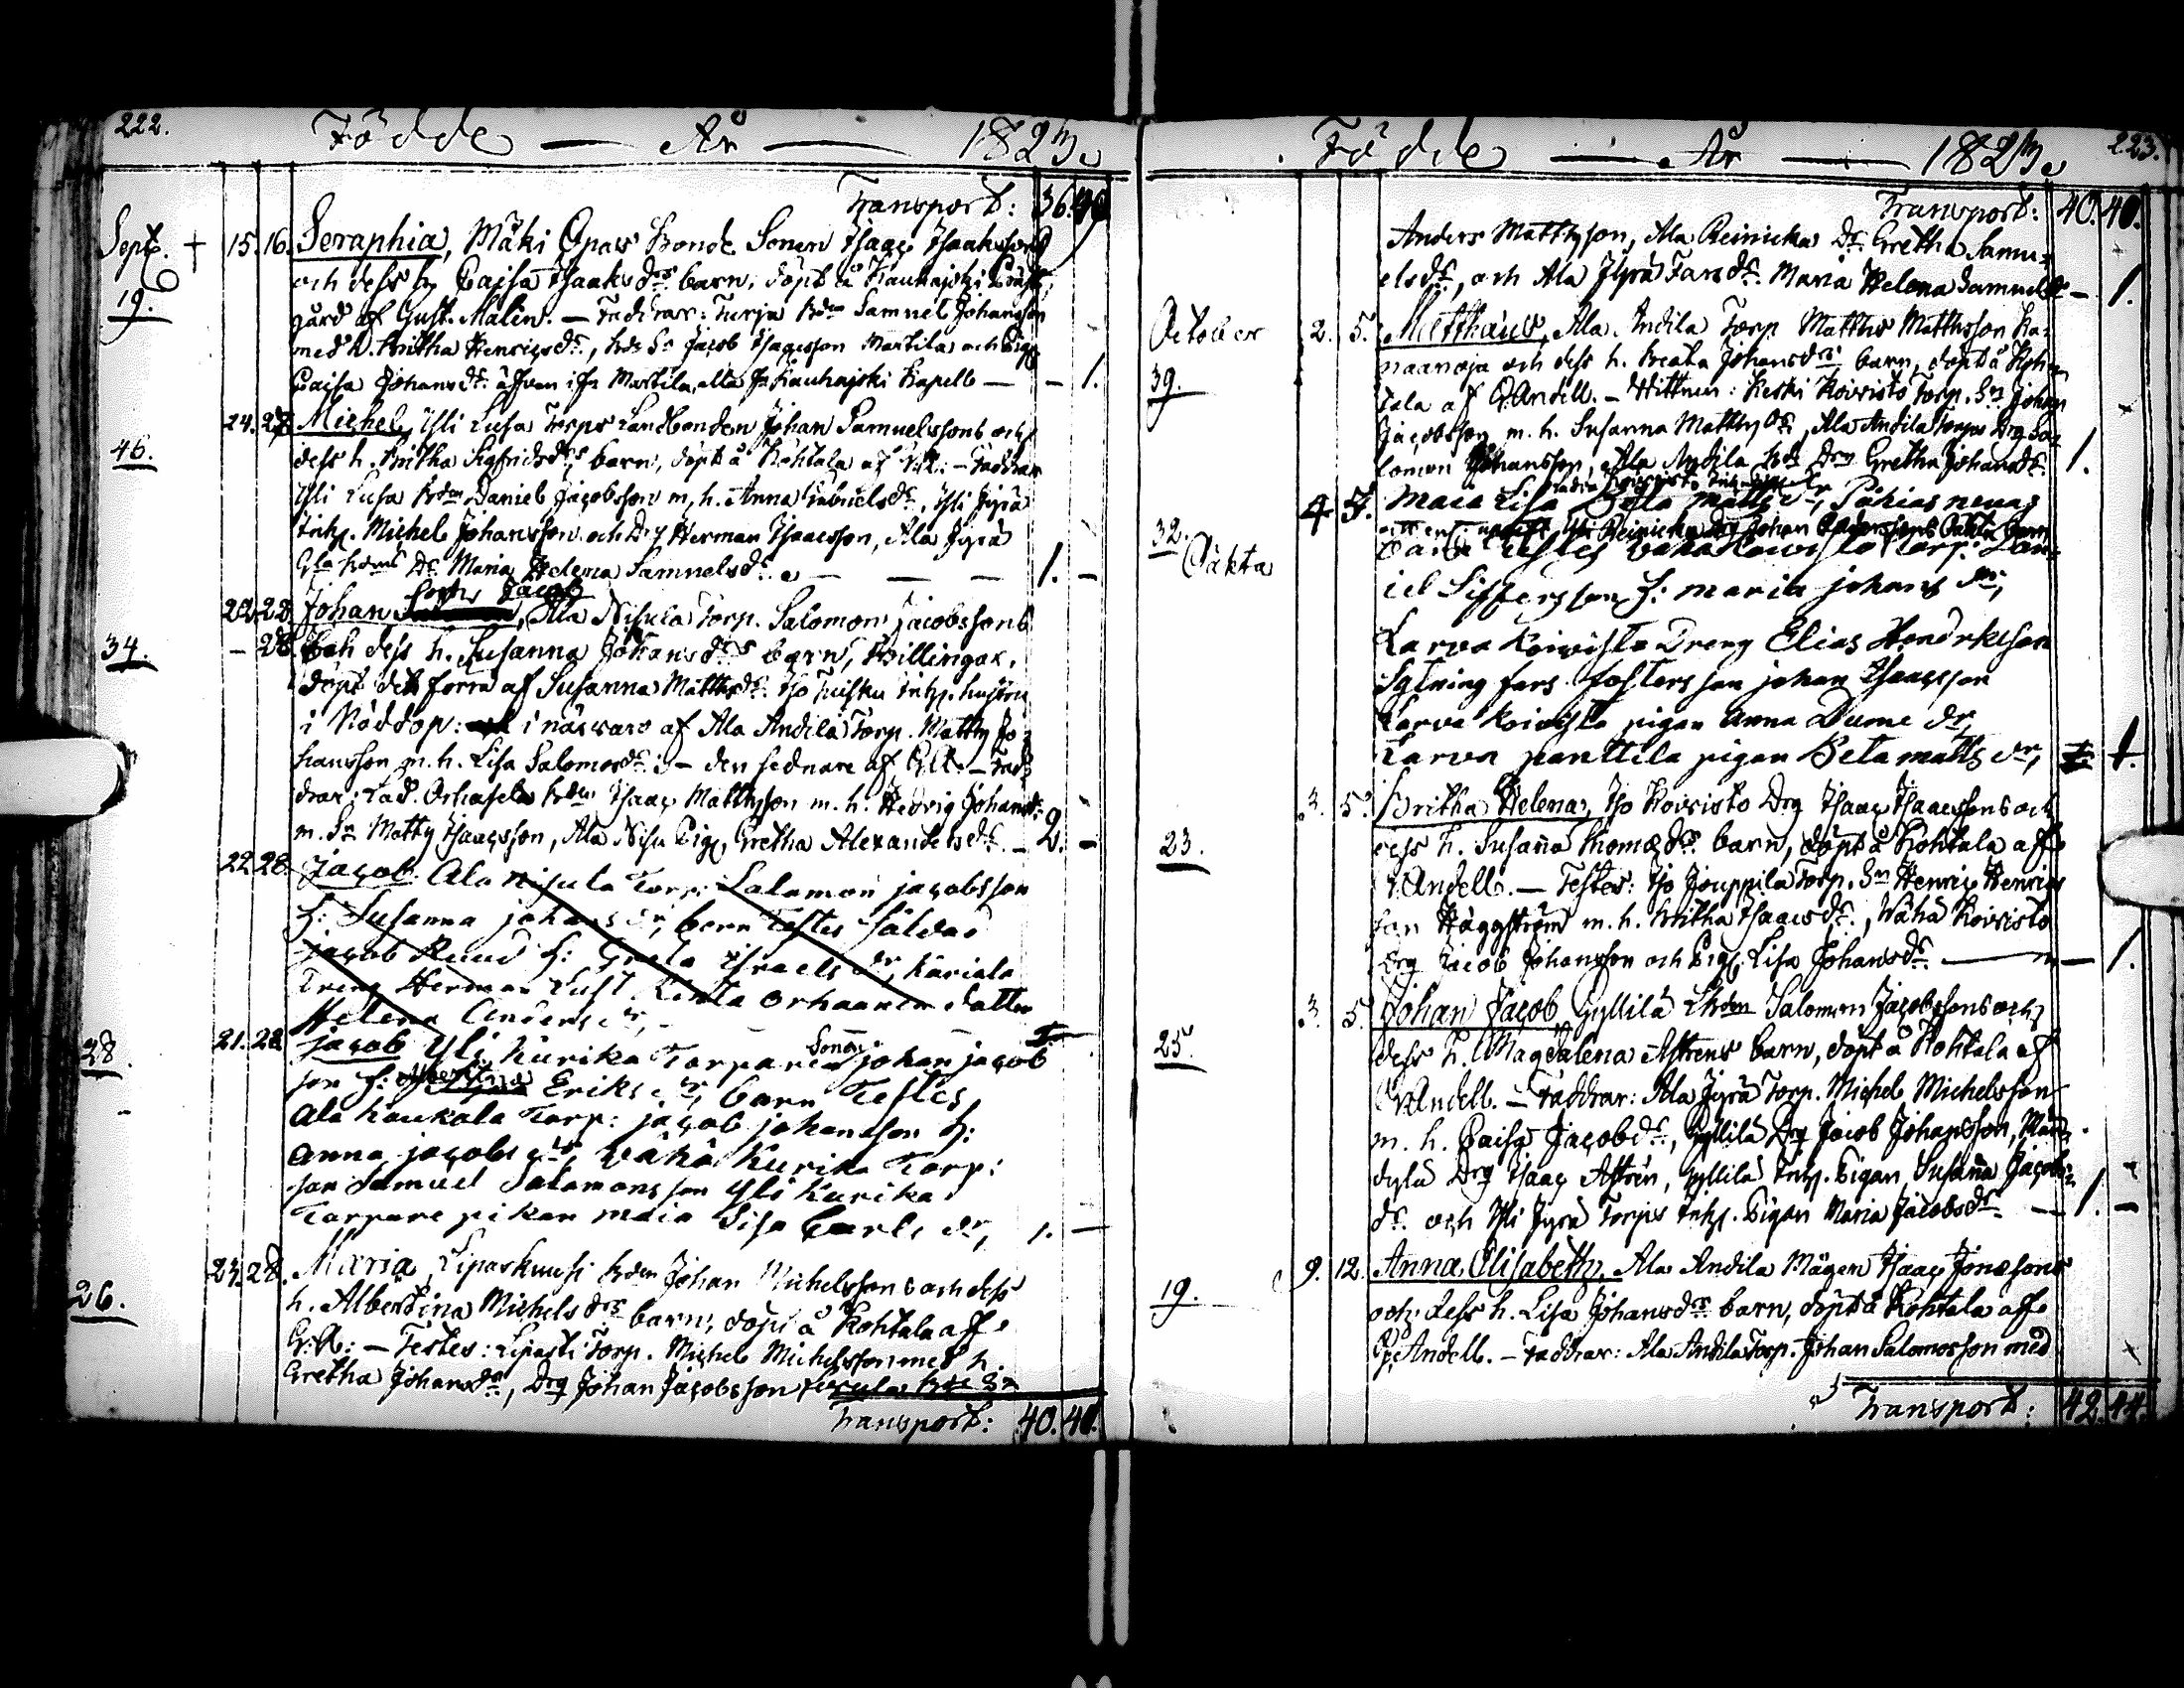 222.
Födde — År — 1823.
Transport: 36. 40
Sept. + 15. 16. Seraphia, Mäki Opas Bonde Sonen Isaac Isaakssons
och dess h. Cajsa Isaaksdrs barn, döpt å Kauhajoki Präst-
19.
gård af Gust. Malin. — Faddrar: Turja Bdn Samuel Johansson
med h. Britha Henricsdr., Bde Sn Jacob Isacsson Martila och Pig.
Caisa Johansdr. äfven ifr Martila, alla fr Kauhajoki Kapell — — 1.
24. 28. Michel, Yli Lusa Torps Landbonden Johan Samuelssons och
46.
dess h. Britha Sigfridsdrs barn, döpt å Kohtala af — Faddrar
Yli Lusa Bdn Daniel Jacobsson m. h. Anna Gabrielsdr., Yli Jyrä
Inh. Michel Johansson och Drg Herman Isaacsson, Ala Jyrä
Gla Bdns Dr. Maria Helena Samuelsdr. — — — 1. —
22. 22. Johan, Jacob, Ala Nisula Torp. Salomon Jacobssons
34.
— 28. och dess h. Susanna Johansdrs barn, Tvillingar,
döpt det förra af Susanna Mattsdr. Iso Inh. hustru
i Nöddop: i närvaro af Ala Andila Torp. Matts Jo-
hansson m. h. Lisa Salomosdr: — den sednare af — Fad-
drar: Bdn Isaac Mattsson m. h. Hedvig Johansdr.
m. Sn Matts Isaacsson, Ala Nisu Pig. Gretha Alexandersdr. — 2. —
22. 28. Jacob Ala Nisula Torp: Salamon jacobsson
h: Susanna johans dr, barn Testes Soldad
jacob Ruud h: Greta Israels dr, Kariala
Dreng Herman Lust. datter
Helena Anders dr,
21. 28. Jacob Yli Kurika Torparen Sonen johan jacob
28.
son h: Albertina Eriks dr, barn Testes
Ala Kaukola Torp: jacob johansson h:
Anna jacobs dr, Vähä Kurika Torp:
son Samuel Salamonsson Yli Kurika
Torpare pikan maia Lisa Carls dr, 1. —
24. 28. Maria, Liparkuusi Bdn Johan Michelssons och dess
26.
h. Albertina Michelsdrs barn, döpt å Kohtala af
G: A: — Testes: Torp. Michel Michelsson med h.
Gretha Johansdr., Drg Johan Jacobsson Bde Sn
Transport: 40. 40.
223.
Födde — År — 1823.
Transport: 40. 40.
Anders Mattsson, Ala Reinicka Dr. Gretha Samu-
elsdr, och Ala Jyrä Fars dr. Maria Helena Samuelsdr — 1.
October 2. 5. Matthäus, Ala Andila Torp Matths Matthsson
39.
och dess h. Beata Johansdrs barn, döpt å Koh-
tala af G. Andell. — Wittnen: Keski Koivisto Torp. Sn Johan
Jacobsson m. h. Susanna Matthsdr., Ala Andila Torps Drg Sa-
lomon Johansson, Ala Andila Bds Drs Gretha Johansdr. 1.
4. 5. Maia Lisa Beta Matts dr,
32.
Oäkta
Barn Testes Vähä Koivisto Torp: Dan-
iel Siffersson h: maria johans dr,
Larva Koivisto Dreng Elias Hendrikson
Sytning fars fosterson johan Isaacsson
Larva Koivisto pigan Anna Dume dr,
Larva panttila pigan Beta matts dr, 1.
3. 5. Britha Helena, Iso Koivisto Drg Isaac Isaacssons och
23.
dess h. Susanna Thomædrs barn, döpt å Kohtala af
G. Andell. — Testes: Iso Jouppila Torp. Sn Henric Henrics
son Häggström m. h. Britha Isaacsdr., Wähä Koivisto
Drg Jacob Johansson och Pig. Lisa Johansdr. — — 1.
3. 5. Johan Jacob, Gyllilä Salomon Jacobssons och
25.
dess h. Magdalena Astrens barn, döpt å Kohtala af
G. Andell. — Faddrar: Ala Jyrä Torp. Michel Michelsson
m. h. Caisa Jacobsdr., Gyllilä Drg Jacob Johansson,
Drg Isaac Astrén, Gyllilä Inh. Pigan Susanna Jacobs-
dr. och Yli Jyrä Torps Inh. Pigan Maria Jacobsdr. — 1. —
9. 12. Anna Elisabeth, Ala Andila Mågen Isaac Jonæsons
19.
och dess h. Lisa Johansdrs barn, döpt å Kohtala af
G. Andell. — Faddrar: Ala Andila Torp. Johan Salomosson med
Transport: 42. 44.